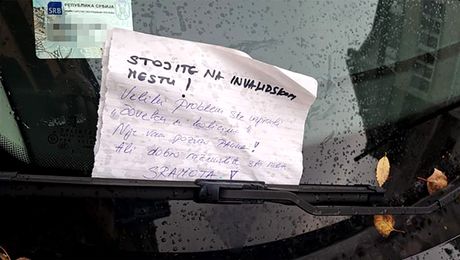 SRB РЕПУБЛИКА СРБИЈА
STOJITE NA INVALIDSKOM
MESTU!
Veliki problem ste
čoveku u kolicima!
Nije vam pozvan
Ali dobro razmislite
SRAMOTA!